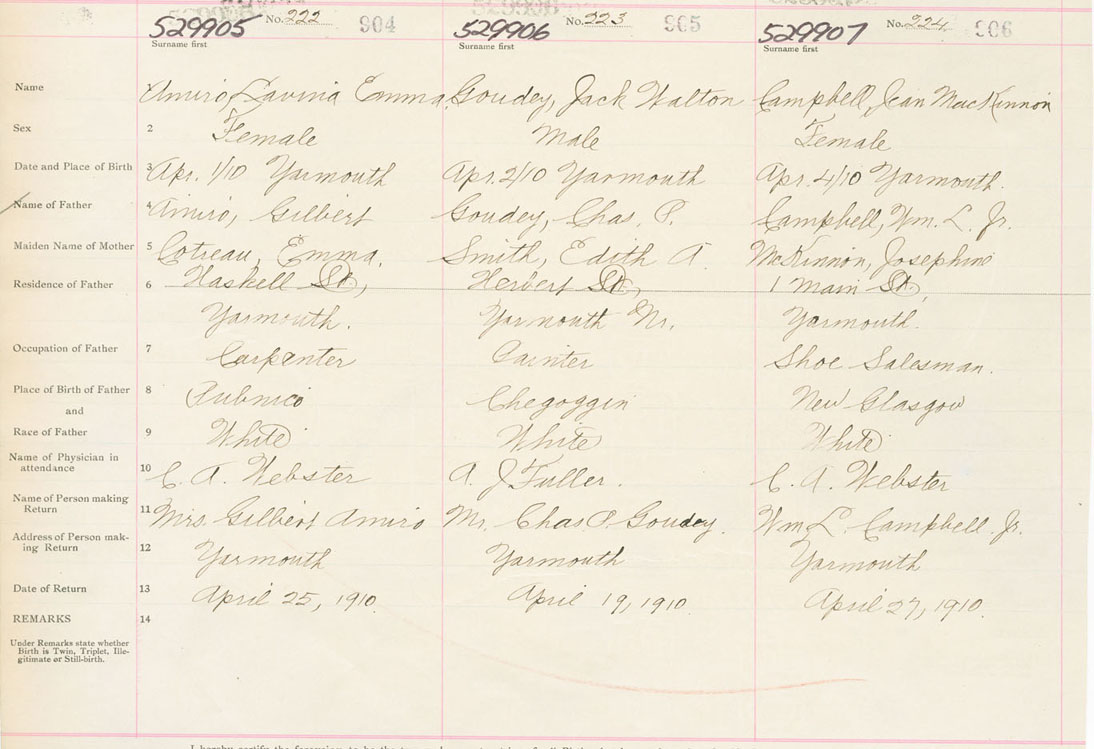 529905 No. 222 904 529906 No. 223 905 529907 No. 224 906
Surname first Surname first Surname first
Name Amiro, Lavina Emma Goudey, Jack Walton Campbell, Jean MacKinnon
Sex 2 Female Male Female
Date and Place of Birth 3 Apr. 1/10 Yarmouth Apr. 2/10 Yarmouth Apr. 4/10 Yarmouth.
Name of Father 4 Amiro, Gilbert Goudey, Chas. P. Campbell, Wm. L. Jr.
Maiden Name of Mother 5 Cotreau, Emma. Smith, Edith A. McKinnon, Josephine
Residence of Father 6 Haskell St., Herbert St., 1 Main St.,
Yarmouth. Yarmouth Nr. Yarmouth.
Occupation of Father 7 Carpenter Painter Shoe Salesman.
Place of Birth of Father 8 Pubnico Chegoggin New Glasgow
and
Race of Father 9 White White White
Name of Physician in
attendance 10 C. A. Webster A. J. Fuller. C. A. Webster
Name of Person making
Return 11 Mrs. Gilbert Amiro Mr. Chas P. Goudey. Wm L. Campbell Jr.
Address of Person mak-
ing Return 12 Yarmouth Yarmouth Yarmouth
Date of Return 13 April 25, 1910. April 19, 1910. April 27, 1910.
REMARKS 14
Under Remarks state whether
Birth is Twin, Triplet, Ille-
gitimate or Still-birth.